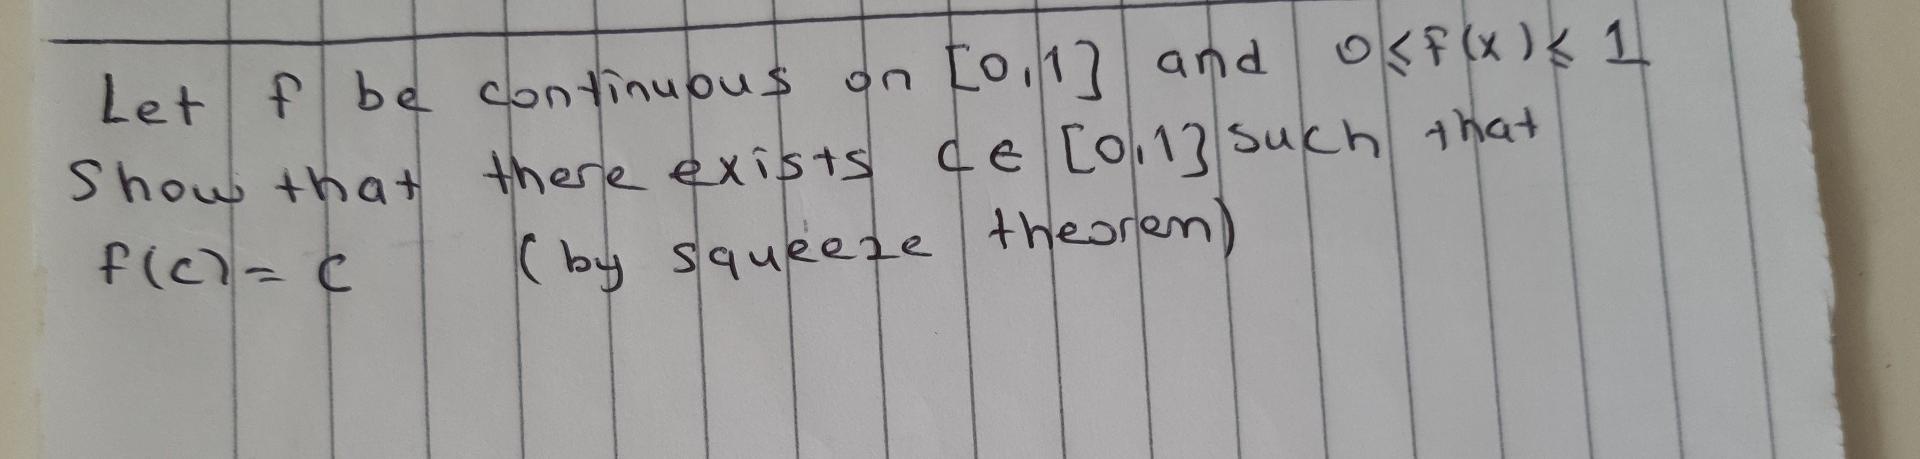 Let f be continuous on [0,1] and 0≤f(x)≤1
Show that there exists c∈[0,1] such that
f(c)=c (by squeeze theorem)